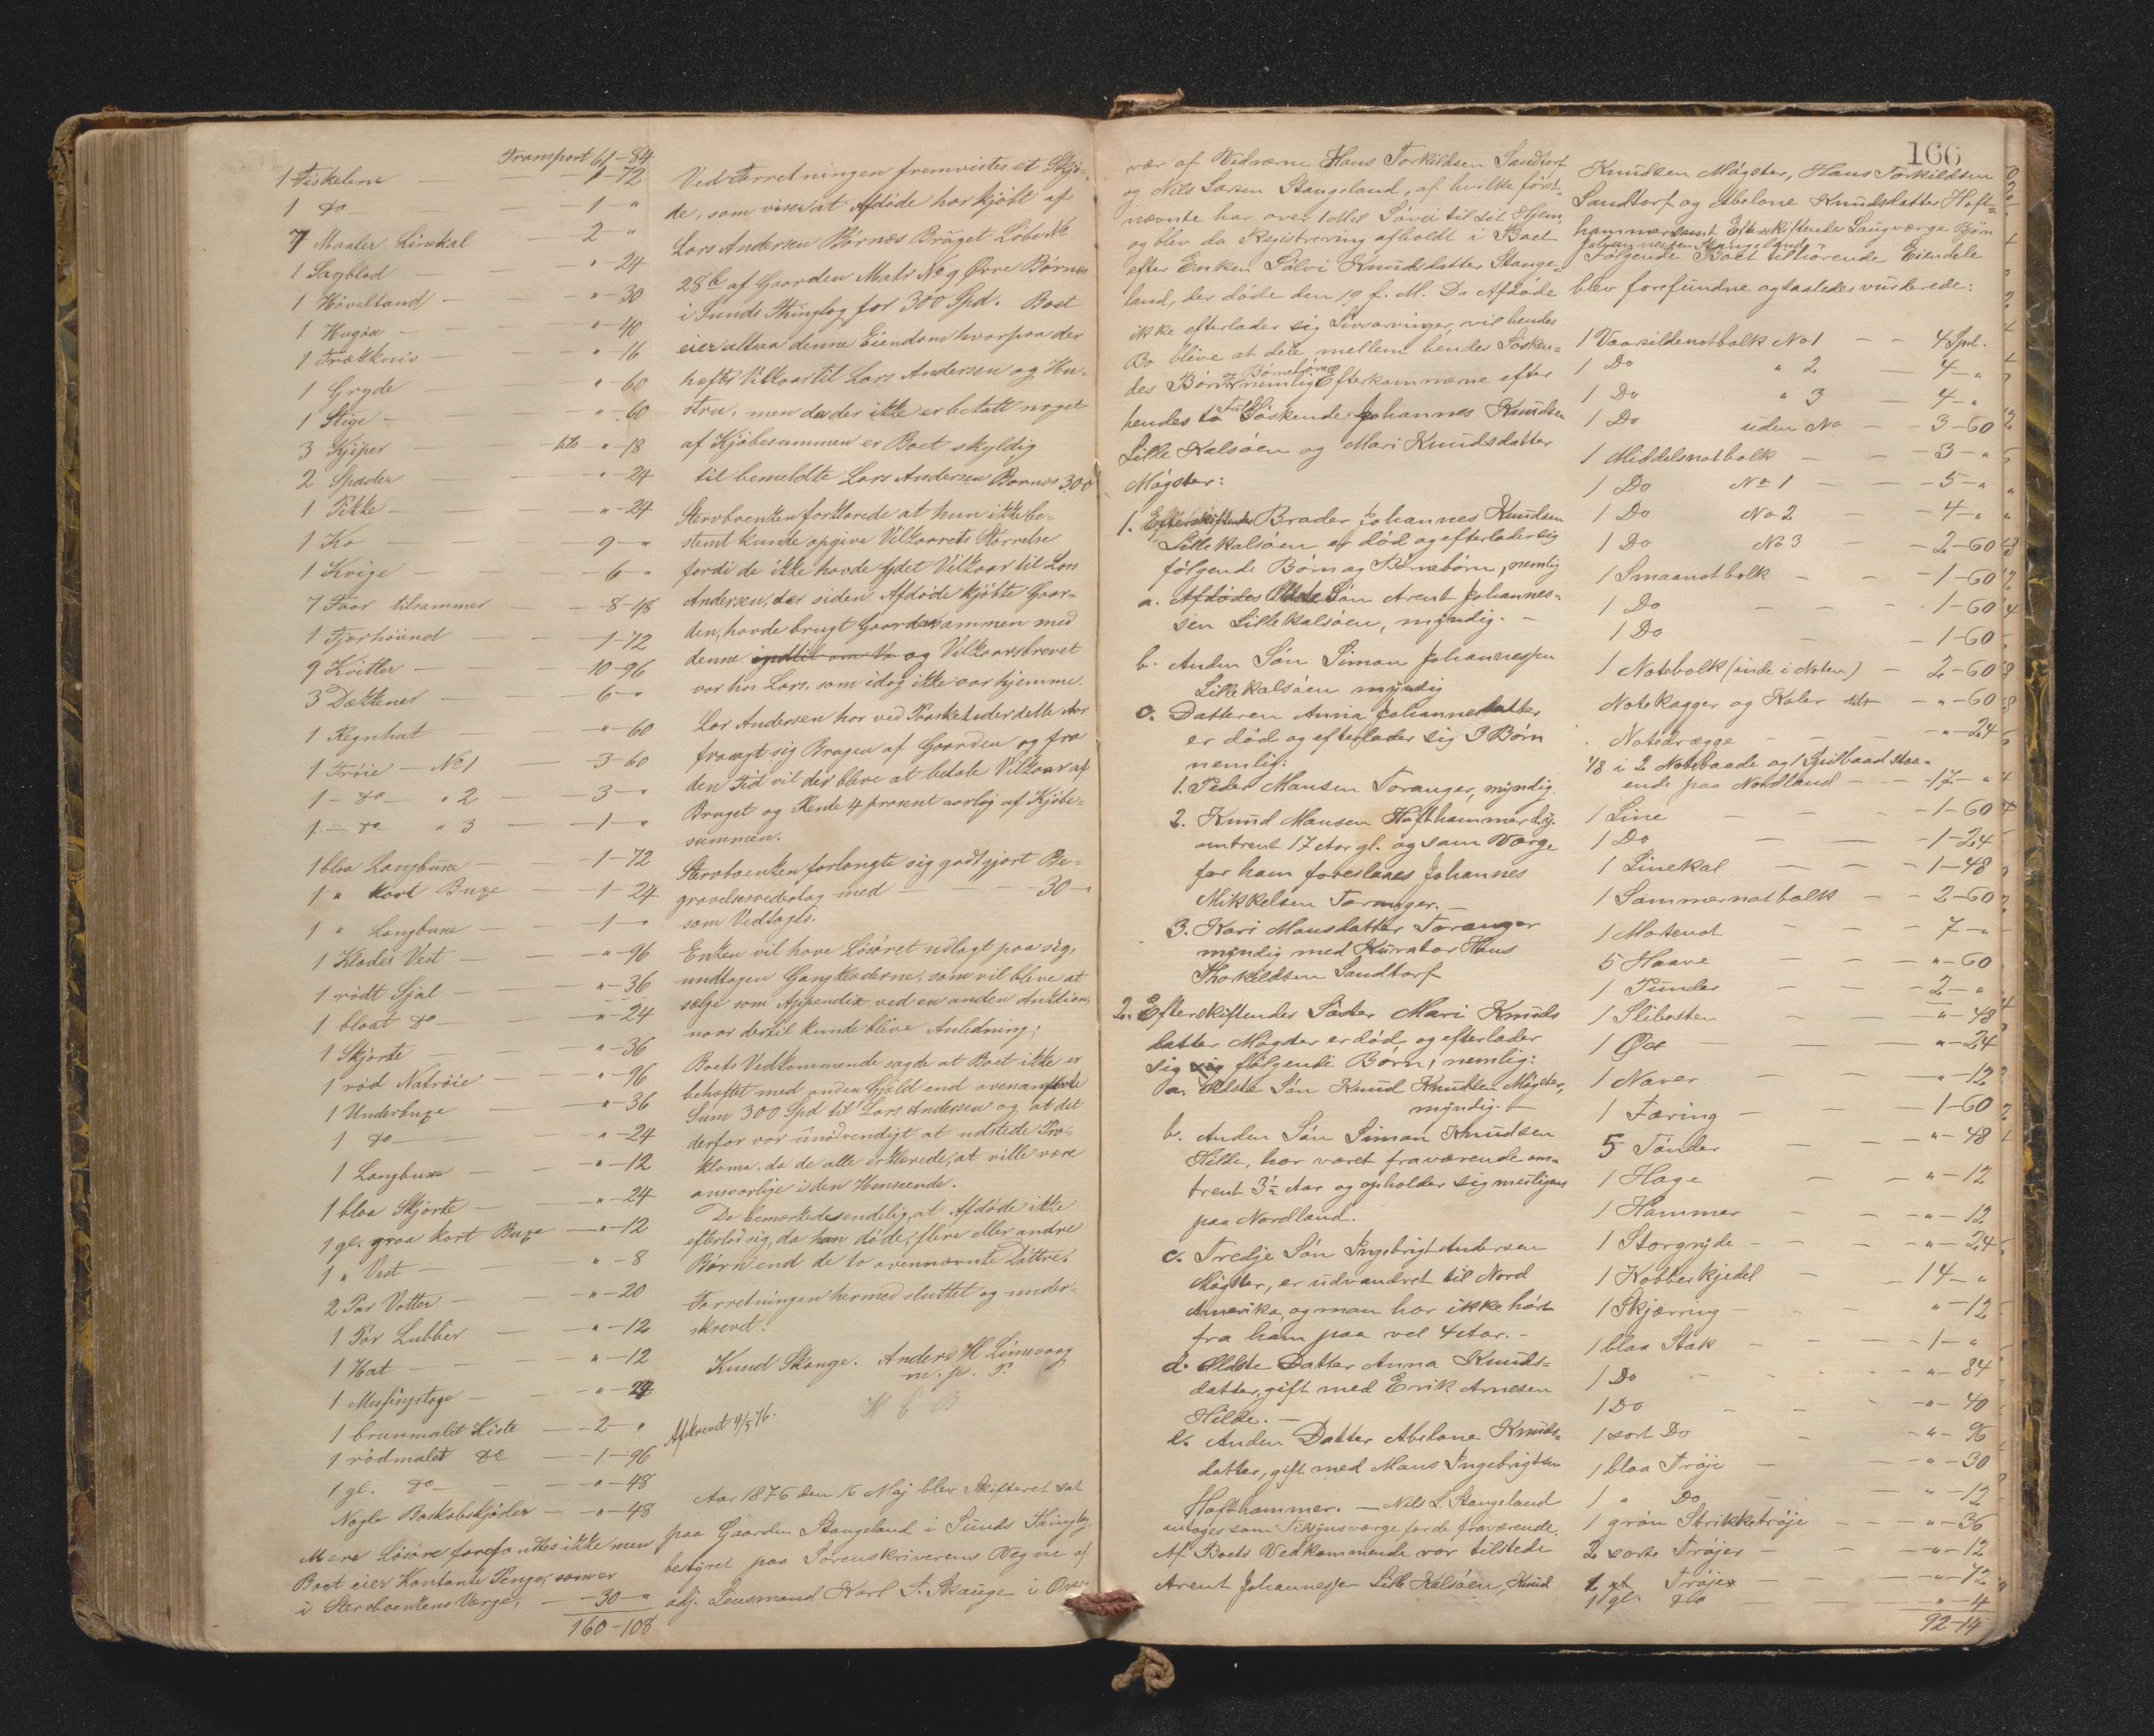 Transport 61-84
1 Fiskeline — 1-72
1 do — 1-"
7 Maaler Linekal — 2-"
1 Sagblad — "-24
1 Høveltand — "-30
1 Hugøx — "-40
1 Trækkniv — "-16
1 Gryde — "-60
1 Stige — "-60
3 Kjiper — tils "-18
2 Spader — "-24
1 Pikke — "-24
1 Ko — 9-"
1 Kvige — 6-"
7 Faar tilsammen — 8-48
1 Fjærhøiend — 1-72
9 Kvitler — 10-96
3 Dækkener — 6-"
1 Regnhat — "-60
1 Trøie — No 1 — 3-60
1 — do — " 2 — 3-"
1 — do " 3 — 1-"
1 blaa Langbuxe — 1-72
1 " kort Buxe — 1-24
1 " Langbuxe — 1-"
1 Klædes Vest — "-96
1 rødt Sjal — "-36
1 blaat do — "-24
1 Skjorte — "-36
1 rød Natrøie — "-96
1 Underbuxe — "-36
1 do — "-24
1 Langbuxe — "-12
1 blaa Skjorte — "-24
1 gl. graa kort Buxe — "-12
1 " Vest — "-8
2 Par Votter — "-20
1 Par Lubber — "-12
1 Hat — "-12
1 Messingstage — "-24
1 brunmalet Kiste — 2-"
1 rødmalet do — 1-96
1 gl. do — "-48
Nogle Boskabskjørler — "-48
Mere Løsøre forefandtes ikke men
Boet eier Kontante Penge, som er
i Stervboenkens Værge, — 30-"
160-108
Ved Forretningen fremvistes et Skjø-
de, som viser at Afdøde har kjøbt af
Lars Andersen Børnes Bruget Løbe No
28b af Gaarden Matr No 9 Øvre Børnes
i Sunds Thinglag for 300 Spd. Boet
eier altsaa denne Eiendom hvorpaa der
hæfter Vilkaar til Lars Andersen og Hu-
stru, men da der ikke er betalt noget
af Kjøbesummen er Boet skyldig
til bemeldte Lars Andersen Børnes 300
Stervboenken forklarede at hun ikke be-
stemt kunde opgive Vilkaarets Størrelse
fordi de ikke havde ydet Vilkaar til Lars
Andersen, der siden Afdøde kjøbte Gaar-
den, havde brugt Gaarden sammen med
denne indtil og Vilkaarsbrevet
var hos Lars, som idag ikke var hjemme.
Lars Andersen har ved Paasketider dette Aar
fragt sig Brugen af Gaarden og fra
den Tid vil der blive at betale Vilkaar af
Bruget og Rente 4 prosent aarlig af Kjøbe-
summen.
Stervboenken forlangte sig godtgjort Be-
gravelsesvederlag med — 30-"
som Vedtoges.
Enken vil have Løsøret udlagt paa sig,
undtagen Gangklæderne, som vil bleve at
sælge som Appendix ved en anden Auktion,
naar dertil kunde blive Anledning;
Boets Vedkommende sagde at Boet ikke er
behæftet med anden Gjæld end ovenanførte
Sum 300 Spd til Lars Andersen og at det
derfor var unødvendigt at udstede Pro-
klama, da de alle erklærede, at ville være
ansvarlige i den Henseende.
De bemærkedes endelig, at Afdøde ikke
efterlod sig, da han døde, flere eller andre
Børn end de to ovennævnte Døttre.
Forretningen hermed sluttet og under-
skrevet.
Knud Skauge. Anders H Limevaag
m. p. P.
K E B
Afskrevet 4/5 76.
Aar 1876 den 16 Maj blev Skifteret sat
paa Gaarden Stangeland i Sunds Thinglag,
bestyret paa Sorenskriverens Vegne af
adj. Lensmand Karl S. Skauge i Over-
166
vær af Vidnerne Hans Torkildsen Sandtorf
og Nils Larsen Stangeland, af hvilke først-
nævnte har over 1 Mil Søvei til sit Hjem,
og blev da Registrering afholdt i Boet
efter Enken Sølvi Knudsdatter Stange-
land, der døde den 19 f. M. Da Afdøde
ikke efterlader sig Livsarvinger, vil hendes
Bo blive at dele mellem hendes Søsken-
des Børn og Børnebørn nemlig Efterkommerne efter
hendes to Søskende Johannes Knudsen
Lille Kalsøen og Mari Knudsdatter
Møgster:
1. Efterskiftendes Broder Johannes Knudsen
Lille Kalsøen er død og efterlader sig
følgende Børn og Børnebørn, nemlig
a. Afdødes Ældste Søn Arent Johannes-
sen Lille Kalsøen, myndig. —
b. Anden Søn Simon Johannessen
Lille Kalsøen myndig
c. Datteren Anna Johannesdatter
er død og efterlader sig 3 Børn
nemlig:
1. Peder Mansen Toranger, myndig.
2. Knud Mansen Hofthammer
omtrent 17 Aar gl. og som Værge
for ham foreslaaes Johannes
Mikkelsen Toranger. —
3. Kari Mansdatter Toranger
myndig med Kurator Hans
Thorkildsen Sandtorf
2. Efterskiftendes Søster Mari Knuds
datter Møgster er død og efterlader
sig følgende Børn, nemlig:
a. Ældste Søn Knud Knudsen Møgster,
myndig. —
b. Anden Søn Simon Knudsen
Hille, har været fraværende om-
trent 3½ Aar og opholder sig muligens
paa Nordland.
c. Tredje Søn Ingebrigt Andersen
Møgster, er udvandret til Nord
Amerika, og man har ikke hørt
fra ham paa vel 4 Aar. —
d. Ældste Datter Anna Knuds-
datter, gift med Erik Arnesen
Hilde. —
e. Anden Datter Abelone Knuds-
datter, gift med Mans Ingebrigtsen
Hofthammer. — Nils L. Stangeland
antages som Tilsynsværge for de fraværende.
Af Boets Vedkommende var tilstede
Arent Johannessen Lille Kalsøen, Knud
Knudsen Møgster, Hans Torkildsen
Sandtorf og Abelone Knudsdatter Hoft-
hammer samt Efterskiftendes Laugværge Bjørn
Stangeland
Følgende Boet tilhørende Eiendele
blev forefundne og saaledes vurderede:
1 Vaarsildenotbolk No 1 — 4 Spd.
1 Do " 2 — 4-"
1 Do " 3 — 4-"
1 Do uden No — 3-60
1 Middelsnotbolk — 3-"
1 Do No 1 — 5-"
1 Do No 2 — 4-"
1 Do No 3 — 2-60
1 Smaanotbolk — 1-60
1 Do — 1-60
1 Do — 1-60
1 Notebolk (inde i Noten) — 2-60
Notekagger og Kaler tils — "-60
Notedrægge — "-24
48 i 2 Notebaade og 1 Spilbaad staa-
ende paa Nordland — 17-"
1 Line — 1-60
1 Do — 1-24
1 Linekal — 1-48
1 Sommernotbolk — 2-60
1 Mortenot — 7-"
5 Haave — "-60
1 Punder — 2-"
1 Slibesten — "-48
1 Øxe — "-24
1 Naver — "-12
1 Færing — 1-60
5 Tønder — "-48
1 Hage — "-12
1 Hammer — "-12
1 Storgryde — "-24
1 Kobberkjedel — 14-"
1 Skjærring — "-12
1 blaa Stak — 1-"
1 Do — "-84
1 Do — "-40
1 sort Do — "-96
1 blaa Trøje — "-30
1 " Do — "-12
1 grøn Strikketrøje — "-36
2 sorte Trøjer — "-12
2 Trøjer — "-72
1 gl. do — "-4
92-14